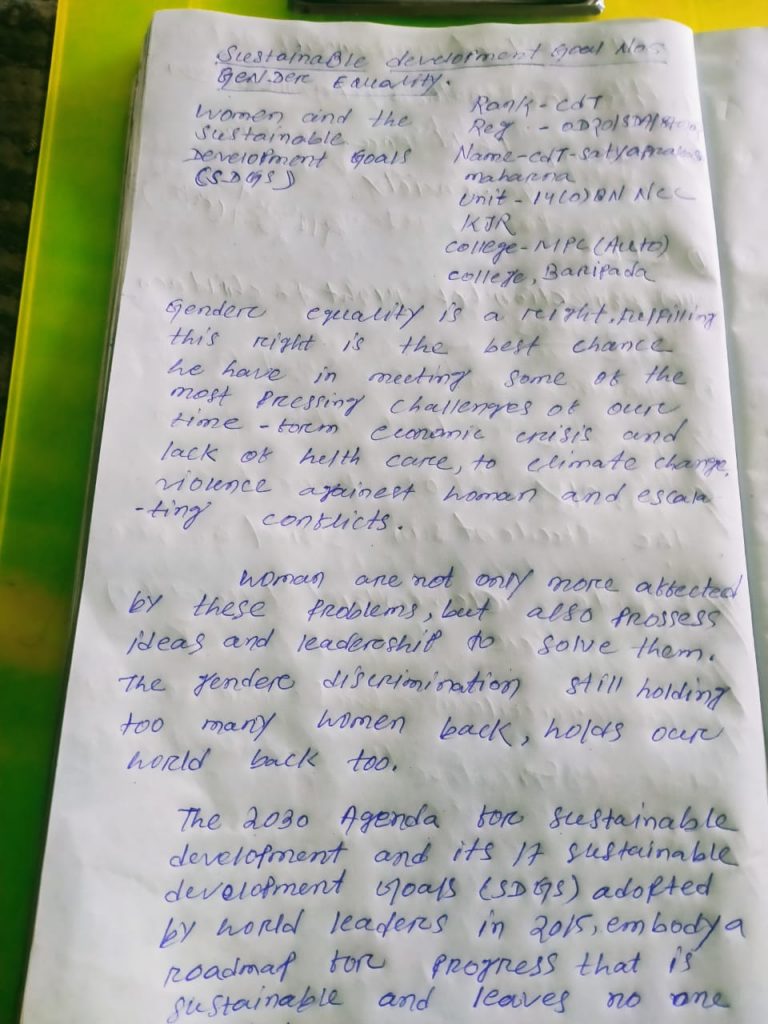 Sustainable development Goal No5
Gender Equality.
Women and the
Sustainable
Development Goals
(SDGS)
Rank - CdT
Reg - OD20/SDA/
Name - CdT - Satyaprakash
maharana
Unit - 14(O) BN NCC
KJR
College - MPC (Auto)
College, Baripada
Gender equality is a right. Fulfilling
this right is the best chance
we have in meeting some of the
most pressing challenges of our
time - form economic crisis and
lack of helth care, to climate change,
violence against woman and escala
-ting conflicts.
Woman are not only more affected
by these problems, but also prossess
ideas and leadership to solve them.
The gender discrimination still holding
too many women back, holds our
world back too.
The 2030 Agenda for sustainable
development and its 17 sustainable
development Goals (SDGS) adopted
by world leaders in 2015, embody a
roadmap for progress that is
sustainable and leaves no one